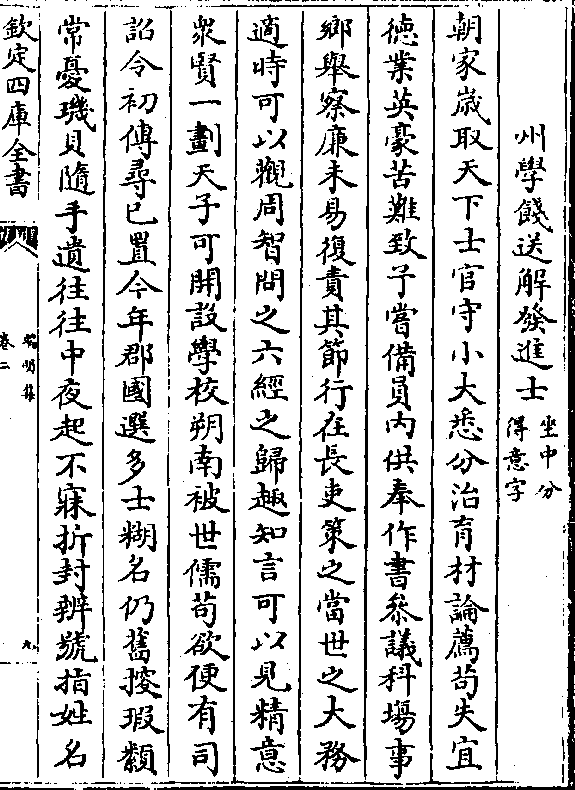 州學餞送解發進士坐中分得意字
朝家歲取天下士官守小大悉分治育材論薦苟失宜
徳業英豪苦難致予嘗備員内供奉作書叅議科塲事
鄉舉察廉未易復責其節行在長吏策之當世之大務
適時可以觀周智問之六經之歸趣知言可以見精意
衆賢一劃天子可開設學校朔南被世儒苟欲便有司
詔令初傳尋已置今年郡國選多士糊名仍舊掩瑕纇
常憂璣貝隨手遺往往中夜起不寐折封辨號指姓名
欽定四庫全書
卷二
九